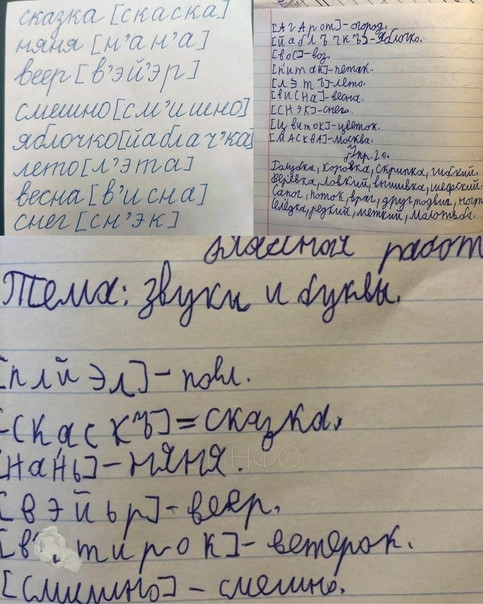 сказка [скаска]
няня [н'ан'а]
веер [в'эй'эр]
смешно [см'ишно]
яблочко [йаблач'ка]
лето [л'эта]
весна [в'исна]
снег [сн'эк]
[Агарот] - огород.
[вос] - воз.
[питак] - пятак.
[лэтъ] - лето.
[висна] - весна.
[снэк] - снег.
[цвиток] - цветок.
[масква] - москва.
Упр. 20.
Голубка, коровка, скрипка, гибкий.
верёвка, ловкий, вышивка, шефский
Сапог, поток, враг, друг, подвиг,
селёдка, редкий, меткий, молотьба.
Тема: звуки и буквы.
[пайэл] - поел.
[скаскъ] = сказка.
[нань] - няня.
[вэйьр] - веер.
тирок] - ветерок.
[смишно] - смешно.